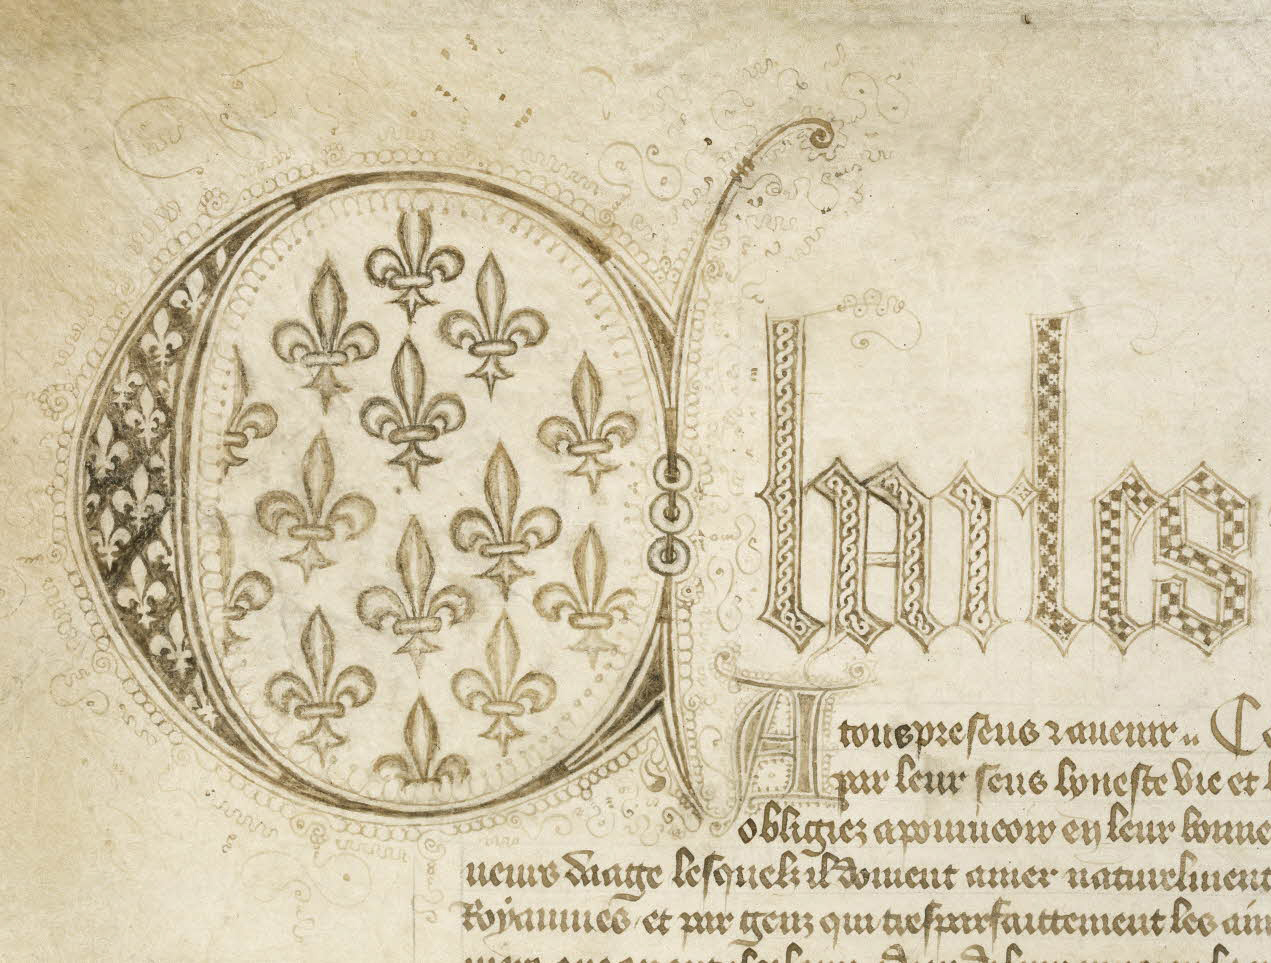 Charles
A tous presens ⁊ auenir .. Co
par leur sens honeste vie et l
obligiez a pourueoir en leur bonne
neurs daage lesquelz il doiuent amer naturelment
Royaumes et par genz qui tresparfaittement les aim